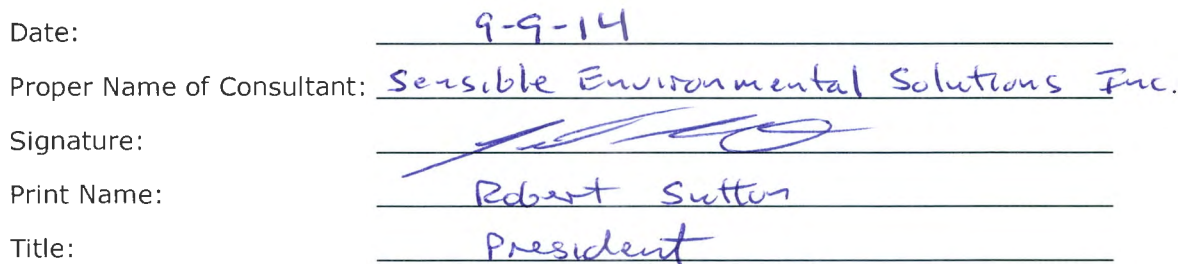 Date: 9-9-14
Proper Name of Consultant: Sensible Environmental Solutions Inc.
Signature:
Print Name: Robert Sutton
Title: President